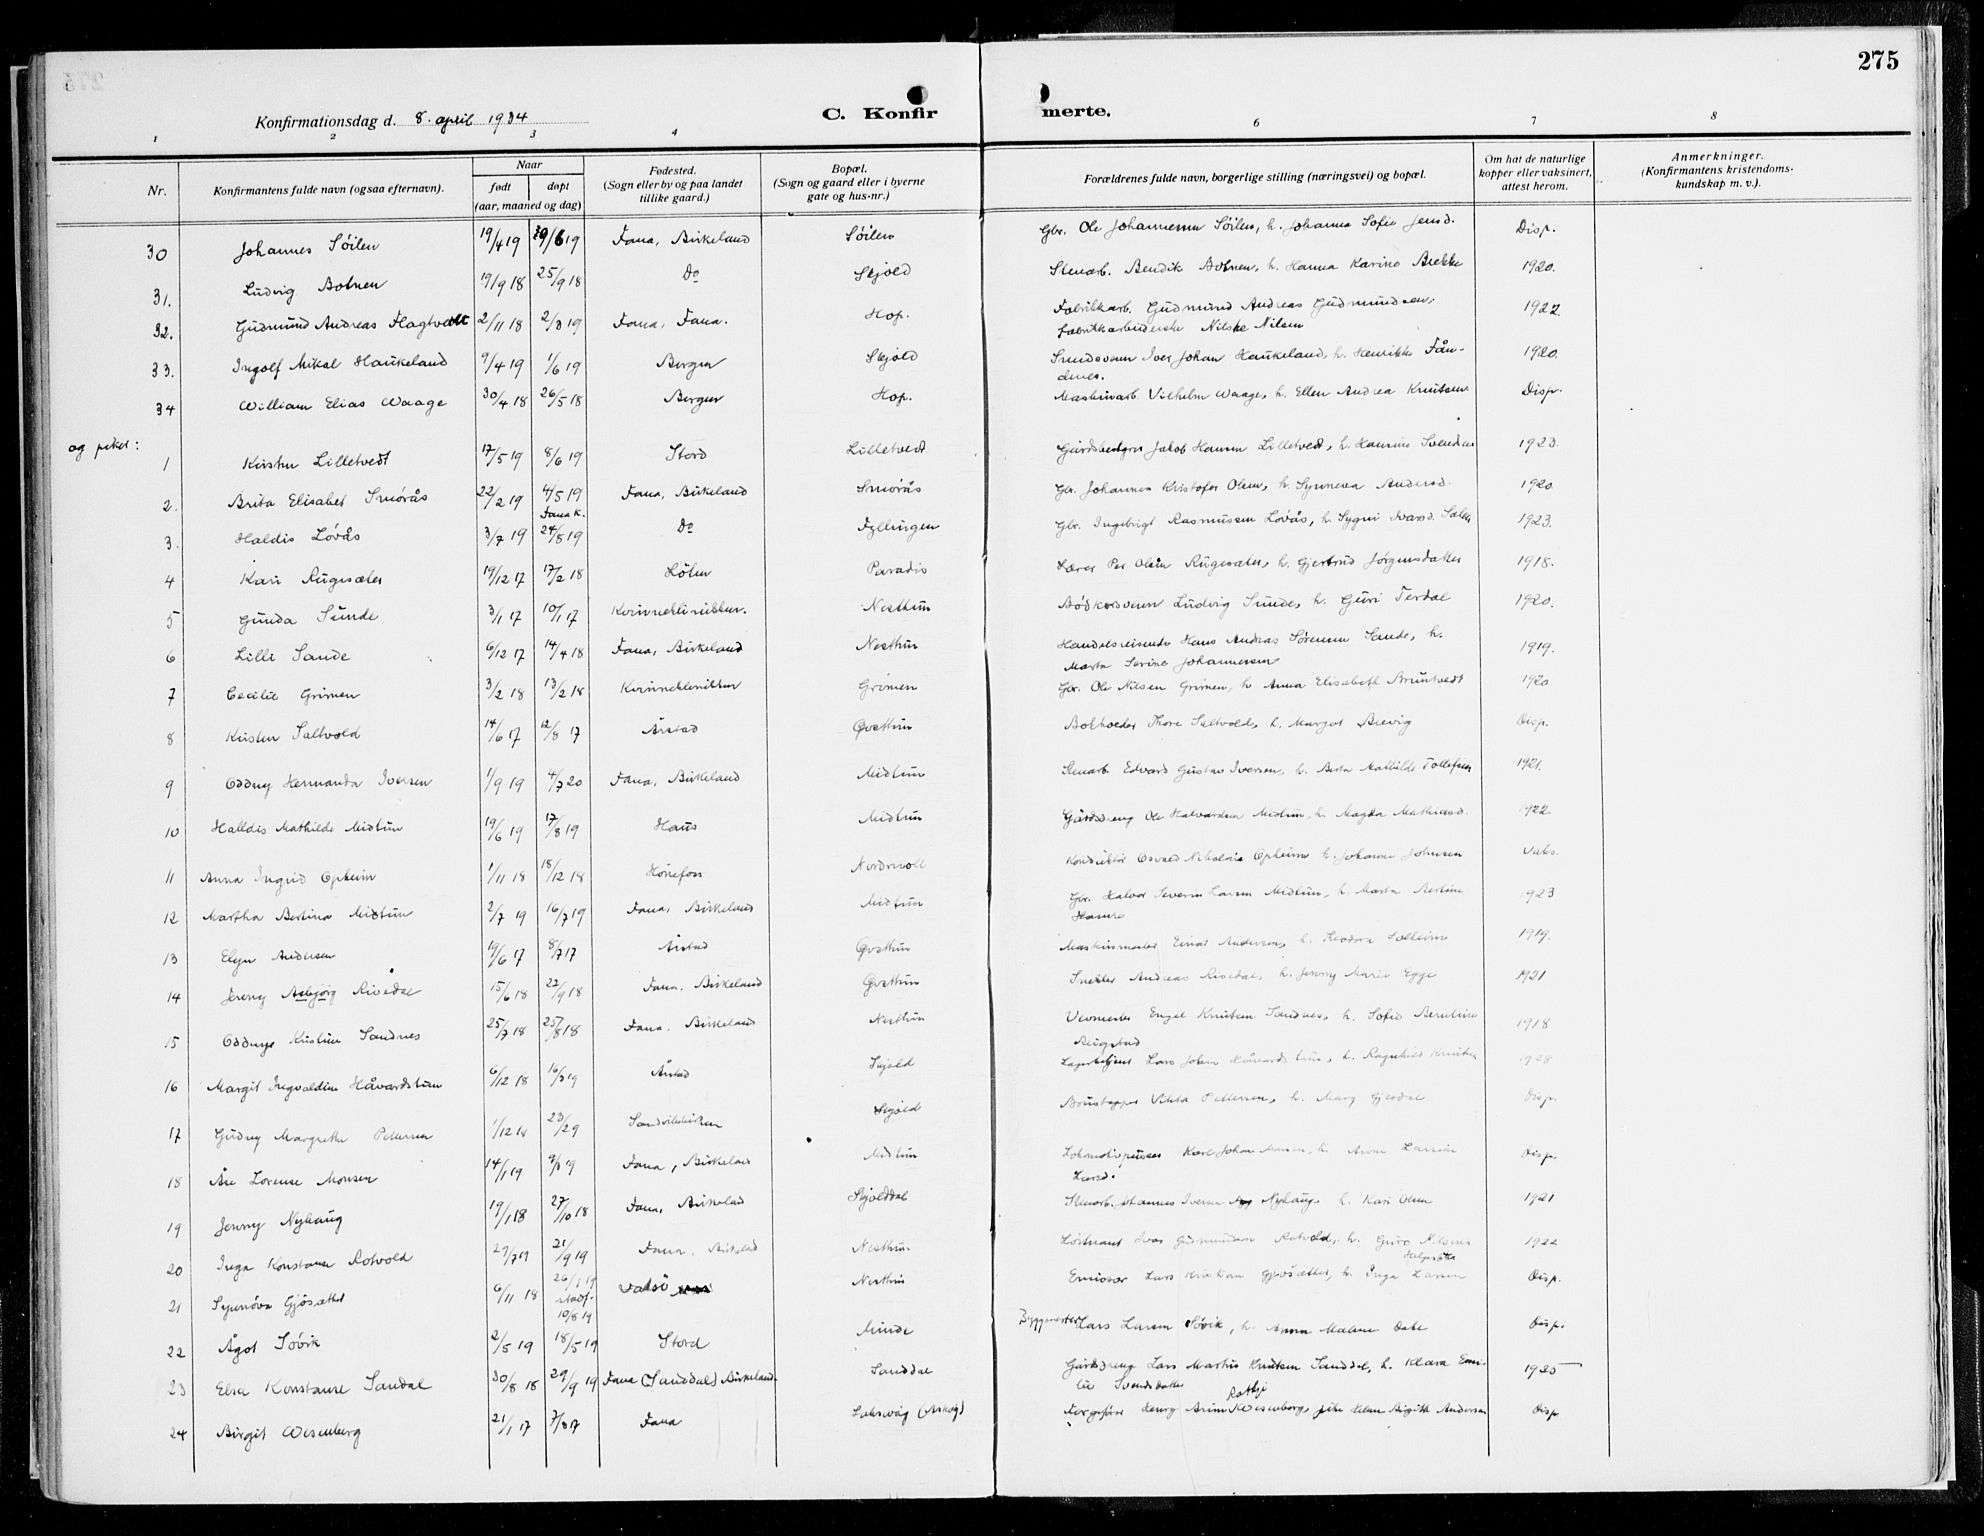 275
Konfirmationsdag d. 8. april 1934
C. Konfir merte.
1 2 3 4 6 7 8
Nr.
Konfirmantens fulde navn (ogsaa efternavn).
Naar
født døpt
(aar, maaned og dag)
Fødested.
(Sogn eller by og paa landet
tillike gaard.)
Bopæl.
(Sogn og gaard eller i byerne
gate og hus-nr.)
Forældrenes fulde navn, borgerlige stilling (næringsvei) og bopæl.
Om hat de naturlige
kopper eller vaksinert,
attest herom.
Anmerkninger.
(Konfirmantens kristendoms-
kundskap m. v.).
30 Johannes Søilen 19/4 19 /6 19 Fana, Birkeland Søilen Gbr. Ole Johannessen Søilen, h. Johanna Sofie Jensd. Disp.
31. Ludvig Botnen 19/9 18 25/9 18 Do Skjold Stenarb. Bendik Botnen, h. Hanna Karine Brekke 1920.
32. Gudmund Andreas Flagtvedt 2/11 18 2/3 19 Fana, Fana. Hop. Fabrikkarb. Gudmund Andreas Gudmundsen,
Fabrikkarbeiderske Nilsen 1922
33. Ingolf Mikal Haukeland 9/4 19 1/6 19 Bergen Skjold Smedsvenn Iver Johan Haukeland, h. Henrikke Fån-
dnes. 1920.
34 William Elias Waage 30/4 18 26/5 18 Bergen Hop. Maskinarb. Vilhelm Waage, h. Ellen Andrea Knutsen. Disp.
og piker:
1 Kirsten Lilletvedt 17/5 19 8/6 19 Stord Lilletvedt Gårdsbestyrer Jakob Hansen Lilletvedt, h. Hansine Svendsen 1923.
2. Brita Elisabet Smørås 22/2 19 4/5 19 Fana K. Fana, Birkeland Smørås Gbr. Johannes Kristofer Olsen, h. Synneva Andersd. 1920.
3. Haldis Løvås 3/7 19 24/8 19 Do Fyllingen Gbr. Ingebrigt Rasmussen Løvås, h. Sygni Ivarsd. 1923.
4 Kari Rugesæter 19/12 17 17/2 18 Paradis Lærer Per Olsen Rugesæter, h. Gjertrud Jørgensdatter 1918.
5 Gunda Sunde 3/1 17 10/1 17 Kvinneklinikken. Nesttun Bødkersvenn Ludvig Sunde, h. Guri Ferdal 1920.
6 Lilli Sande 6/12 17 14/4 18 Fana, Birkeland Nesttun Handelsreisende Hans Andreas Sørensen Sande, h.
Marta Serine Johannesen 1919.
7 Cecilie Grimen 3/2 18 13/2 18 Kvinneklinikken Grimen Gbr. Ole Nilsen Grimen, h. Anna Elisabeth Bruntvedt 1920
8 Kirsten Saltvold 14/6 17 12/8 17 Årstad Øvsttun Bokholder Thore Saltvold, h. Margot Brevig Disp.
9 Oddny Hermanda Iversen 1/9 19 4/7 20 Fana, Birkeland Midtun Stenarb. Edvard Gustav Iversen, h. Berta Mathilde Tollefsen 1921.
10 Halldis Mathilde Midtun 19/6 19 17/8 19 Haus Midtun Gårdsdreng Ole Halvardsen Midtun, h. Magda Mathiesd. 1922.
11 Anna Ingrid Opheim 1/11 18 18/12 18 Hønefoss Nordnvoll Konduktør Osvald Nikolai Opheim h. Johanne Johnsen Vaks.
12 Martha Bertina Midtun 2/7 19 16/7 19 Fana, Birkeland Midtun Gbr. Halvor Severin Larsen Midtun, h. Marta Bertine
Hamre 1923
13 Elyn Andersen 19/6 17 8/7 17 Årstad Øvsttun Maskinmester Einar Andersen, h. Teodora Solheim 1919.
14 Jenny Asbjørg Risedal 15/6 18 22/9 18 Fana, Birkeland Øvsttun Snekker Andreas Risedal, h. Jenny Marie Egge 1921
15 Oddny Kristine Sandnes 25/7 18 25/8 18 Fana, Birkeland Nesttun Veimester Engel Knutsen Sandnes, h. Sofie Berntine
Augestad 1918
16 Margit Ingvaldine Håvardstun 6/12 18 16/3 19 Årstad Skjold Lagerbetjent Lars Johan Håvardstun, h. Ragnhild Knutsen 1928
17 Gudny Margrethe Pettersen 1/12 18 23/ 29 Sandvikskirken Skjold Brustapper Pettersen, h. Mary Gjerdal Disp.
18 Åse Lorense Monsen 14/1 19 9/3 19 Fana, Birkeland Midtun Lokomotivpusser Karl Johan Monsen, h. Anne
Larsd. Disp.
19 Jenny Nyhaug 19/1 18 27/10 18 Fana, Birkelad Skjolddal Stenarb. Johannes Iversen Nyhaug h. Kari Olsen 1921
20 Inga Konstanse Rotvold 29/7 19 21/9 19 Fana, Birkelad Nesttun Løitnant Ivar Gudmundsen Rotvold, h. Guro Nilsine
1922
21 Synnøve Gjøsæther 6/11 18 26/1 19
stadf.
10/8 19 Nesttun Emissær Lars Kristian Gjøsæther, h. Inga Larsen Disp.
22 Ågot Søvik 2/5 19 18/5 19 Stord Minde Byggmester Lars Larsen Søvik, h. Anna Malene Disp.
23 Elsa Konstanse Sandal 30/8 18 29/9 19 Fana (Sanddal) Birkeland. Sanddal Gårdsdreng Lars Martin Knutsen Sanddal, h. Klara Emi-
lie Svendsdatter 1925
24 Birgit Wesenberg 21/1 17 7/8 17 Fana Laksevåg (Askøy) Henry Wesenberg, Birgith Andersen Disp